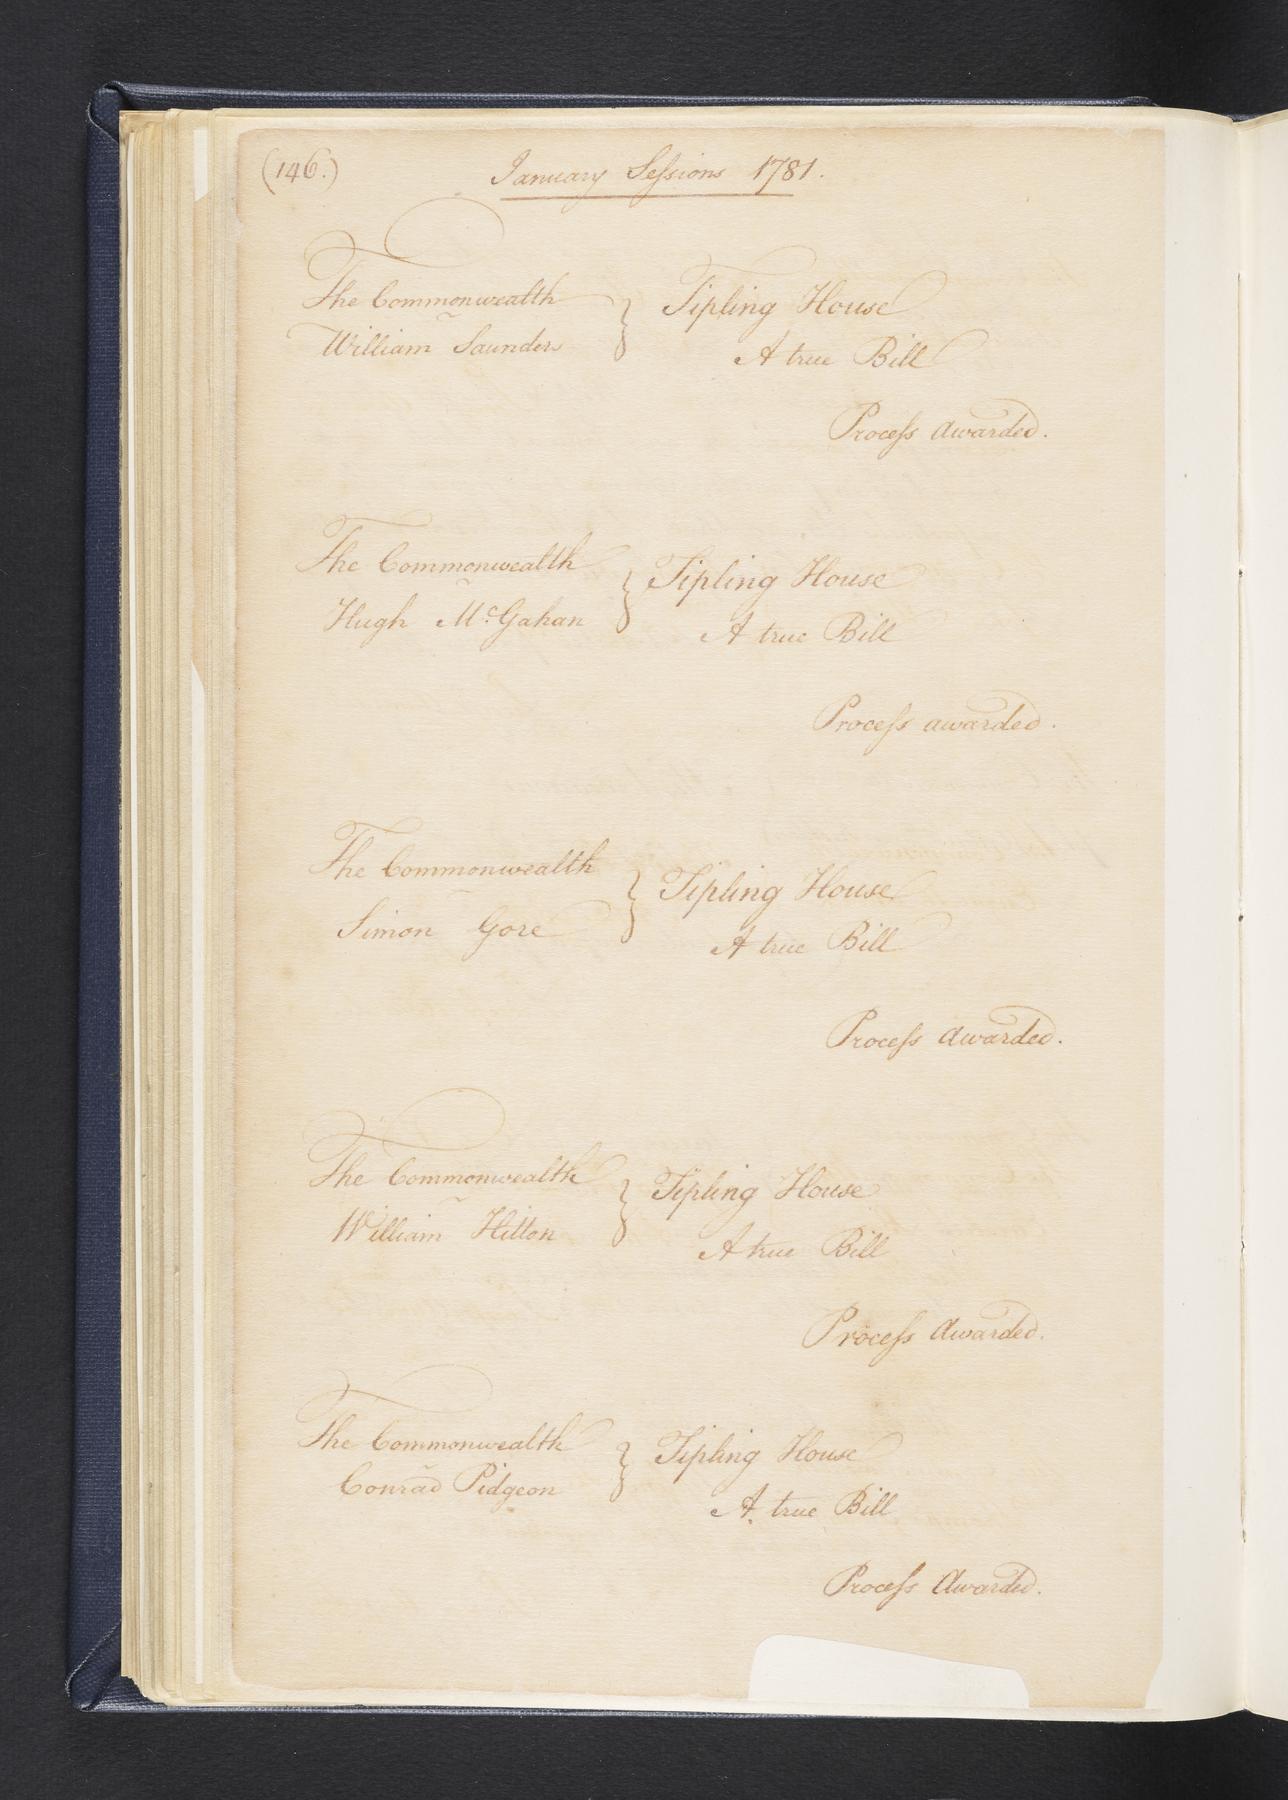 (146.)
January Seſsions 1781.
The Commonwealth } Tipling House
William Saunders
A true Bill
Proceſs Awarded.
The Commonwealth } Tipling House
Hugh McGahan
A true Bill
Proceſs awarded.
The Commonwealth } Tipling House
Simon Gore
A true Bill
Proceſs Awarded.
The Commonwealth } Tipling House
William Hilton
A true Bill
Proceſs Awarded.
The Commonwealth } Tipling House
Conrad Pidgeon
A true Bill
Proceſs Awarded.